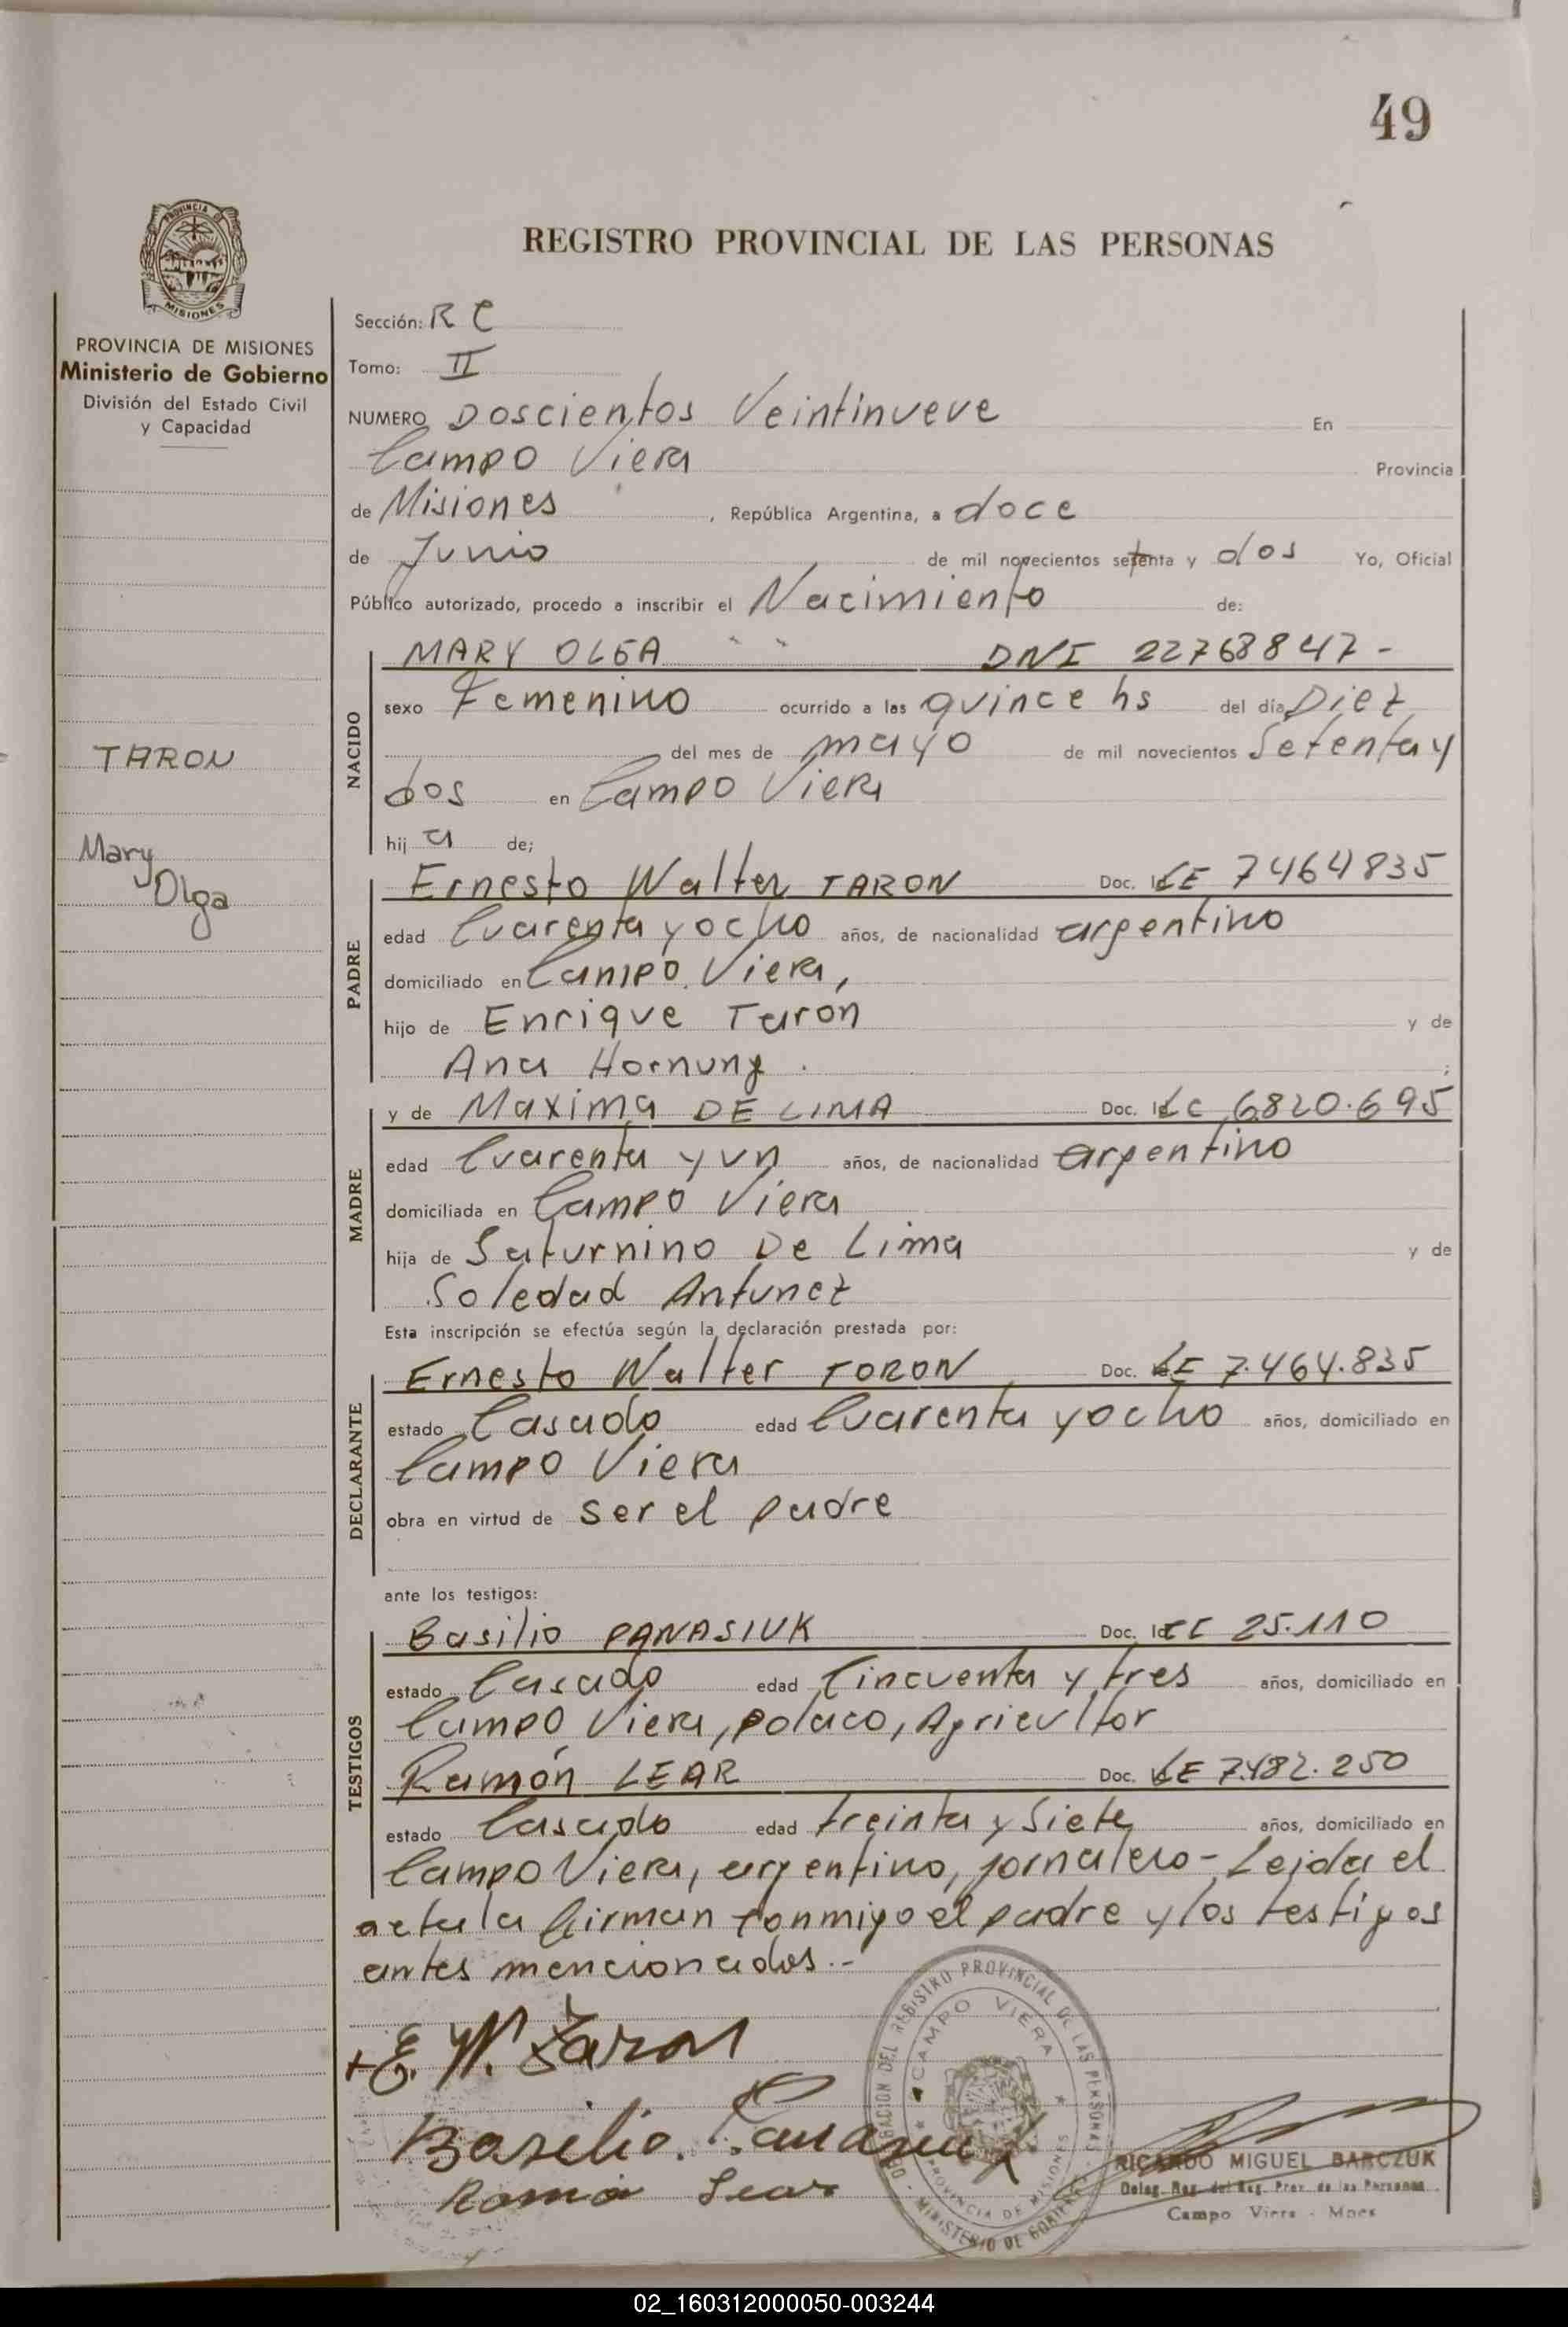 49
REGISTRO PROVINCIAL DE LAS PERSONAS
PROVINCIA DE MISIONES
Ministerio de Gobierno
División del Estado Civil
y Capacidad
TARON
Mary
Olga
Sección: R C
Tomo: II
NUMERO Doscientos Veintinueve En
Campo Viera Provincia
de Misiones, República Argentina, a doce
de Junio de mil novecientos setenta y dos Yo, Oficial
Público autorizado, procedo a inscribir el Nacimiento de:
NACIDO
MARY OLGA " " DNI 22768847-
sexo Femenino ocurrido a las quince hs del día Diez
del mes de mayo de mil novecientos Setenta y
dos en Campo Viera
hij a de;
PADRE
Ernesto Walter TARON Doc. LE 7464835
edad Cuarenta y ocho años, de nacionalidad argentino
domiciliado en Campo Viera,
hijo de Enrique Taron y de
Ana Hornung. ;
MADRE
y de Maxima DE LIMA Doc. LC 6820.695
edad Cuarenta y un años, de nacionalidad argentino
domiciliada en Campo Viera
hija de Saturnino De Lima y de
Soledad Antunez
Esta inscripción se efectúa según la declaración prestada por:
DECLARANTE
Ernesto Walter TORON Doc. LE 7.464.835
estado Casado edad Cuarenta y ocho años, domiciliado en
Campo Viera
obra en virtud de ser el padre
ante los testigos:
TESTIGOS
Basilio PANASIUK Doc. 25.110
estado Casado edad Cincuenta y tres años, domiciliado en
Campo Viera, polaco, Agricultor
Ramón LEAR Doc. LE 7.482.250
estado Casado edad treinta y Siete años, domiciliado en
Campo Viera, argentino, jornalero- Leida el
acta la firman conmigo el padre y los testigos
antes mencionados.-
E. W. Taron
Basilio Panasiuk
Ramon Lear
DEL REGISTRO PROVINCIAL DE LAS PERSONAS - MINISTERIO DE GOBIERNO
CAMPO VIERA
PROVINCIA DE MISIONES
RICARDO MIGUEL BARCZUK
Deleg. Reg. del Reg. Prov. de las Personas
Campo Viera - Mnes
02_160312000050-003244